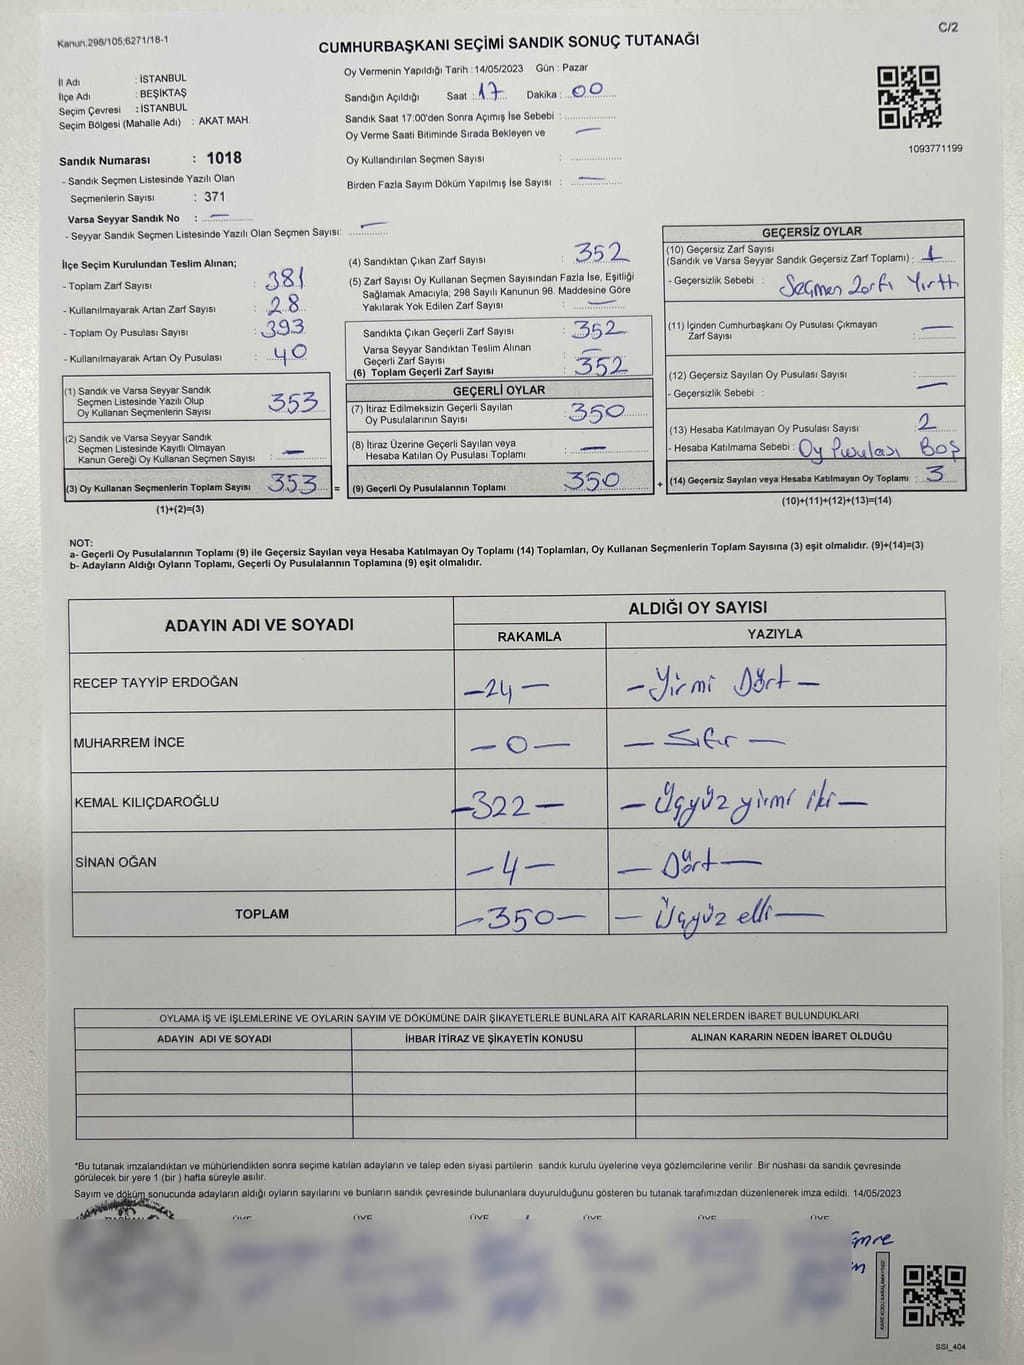 Kanun;298/105;6271/18-1
C/2
CUMHURBAŞKANI SEÇİMİ SANDIK SONUÇ TUTANAĞI
İl Adı : İSTANBUL
İlçe Adı : BEŞİKTAŞ
Seçim Çevresi : İSTANBUL
Seçim Bölgesi (Mahalle Adı) : AKAT MAH.
Oy Vermenin Yapıldığı Tarih : 14/05/2023 Gün : Pazar
Sandığın Açıldığı Saat : 17 Dakika : 00
Sandık Saat 17:00'den Sonra Açımış İse Sebebi :
Oy Verme Saati Bitiminde Sırada Bekleyen ve —
Oy Kullandırılan Seçmen Sayısı :
Birden Fazla Sayım Döküm Yapılmış İse Sayısı : —
1093771199
Sandık Numarası : 1018
- Sandık Seçmen Listesinde Yazılı Olan
Seçmenlerin Sayısı : 371
Varsa Seyyar Sandık No : —
- Seyyar Sandık Seçmen Listesinde Yazılı Olan Seçmen Sayısı: —
İlçe Seçim Kurulundan Teslim Alınan;
- Toplam Zarf Sayısı : 381
- Kullanılmayarak Artan Zarf Sayısı : 28
- Toplam Oy Pusulası Sayısı : 393
- Kullanılmayarak Artan Oy Pusulası : 40
(1) Sandık ve Varsa Seyyar Sandık
Seçmen Listesinde Yazılı Olup
Oy Kullanan Seçmenlerin Sayısı : 353
(2) Sandık ve Varsa Seyyar Sandık
Seçmen Listesinde Kayıtlı Olmayan
Kanun Gereği Oy Kullanan Seçmen Sayısı : —
(3) Oy Kullanan Seçmenlerin Toplam Sayısı 353 =
(1)+(2)=(3)
(4) Sandıktan Çıkan Zarf Sayısı : 352
(5) Zarf Sayısı Oy Kullanan Seçmen Sayısından Fazla İse, Eşitliği
Sağlamak Amacıyla; 298 Sayılı Kanunun 98. Maddesine Göre
Yakılarak Yok Edilen Zarf Sayısı : —
Sandıkta Çıkan Geçerli Zarf Sayısı : 352
Varsa Seyyar Sandıktan Teslim Alınan
Geçerli Zarf Sayısı : —
(6) Toplam Geçerli Zarf Sayısı : 352
GEÇERLİ OYLAR
(7) İtiraz Edilmeksizin Geçerli Sayılan
Oy Pusulalarının Sayısı : 350
(8) İtiraz Üzerine Geçerli Sayılan veya
Hesaba Katılan Oy Pusulası Toplamı : —
(9) Geçerli Oy Pusulalarının Toplamı : 350 +
GEÇERSİZ OYLAR
(10) Geçersiz Zarf Sayısı
(Sandık ve Varsa Seyyar Sandık Geçersiz Zarf Toplamı) : 1
- Geçersizlik Sebebi : Seçmen Zarfı Yırttı
(11) İçinden Cumhurbaşkanı Oy Pusulası Çıkmayan
Zarf Sayısı : —
(12) Geçersiz Sayılan Oy Pusulası Sayısı :
- Geçersizlik Sebebi : —
(13) Hesaba Katılmayan Oy Pusulası Sayısı : 2
- Hesaba Katılmama Sebebi : Oy Pusulası Boş
(14) Geçersiz Sayılan veya Hesaba Katılmayan Oy Toplamı : 3
(10)+(11)+(12)+(13)=(14)
NOT:
a- Geçerli Oy Pusulalarının Toplamı (9) ile Geçersiz Sayılan veya Hesaba Katılmayan Oy Toplamı (14) Toplamları, Oy Kullanan Seçmenlerin Toplam Sayısına (3) eşit olmalıdır. (9)+(14)=(3)
b- Adayların Aldığı Oyların Toplamı, Geçerli Oy Pusulalarının Toplamına (9) eşit olmalıdır.
ADAYIN ADI VE SOYADI
ALDIĞI OY SAYISI
RAKAMLA YAZIYLA
RECEP TAYYİP ERDOĞAN —24— —Yirmi Dört—
MUHARREM İNCE —0— —Sıfır—
KEMAL KILIÇDAROĞLU —322— —Üçyüz yirmi iki—
SİNAN OĞAN —4— —Dört—
TOPLAM —350— —Üçyüz elli—
OYLAMA İŞ VE İŞLEMLERİNE VE OYLARIN SAYIM VE DÖKÜMÜNE DAİR ŞİKAYETLERLE BUNLARA AİT KARARLARIN NELERDEN İBARET BULUNDUKLARI
ADAYIN ADI VE SOYADI İHBAR İTİRAZ VE ŞİKAYETİN KONUSU ALINAN KARARIN NEDEN İBARET OLDUĞU
*Bu tutanak imzalandıktan ve mühürlendikten sonra seçime katılan adayların ve talep eden siyasi partilerin sandık kurulu üyelerine veya gözlemcilerine verilir .Bir nüshası da sandık çevresinde
görülecek bir yere 1 (bir ) hafta süreyle asılır.
Sayım ve döküm sonucunda adayların aldığı oyların sayılarını ve bunların sandık çevresinde bulunanlara duyurulduğunu gösteren bu tutanak tarafımızdan düzenlenerek imza edildi. 14/05/2023
ÜYE ÜYE ÜYE ÜYE ÜYE ÜYE
Emre
SSI_404